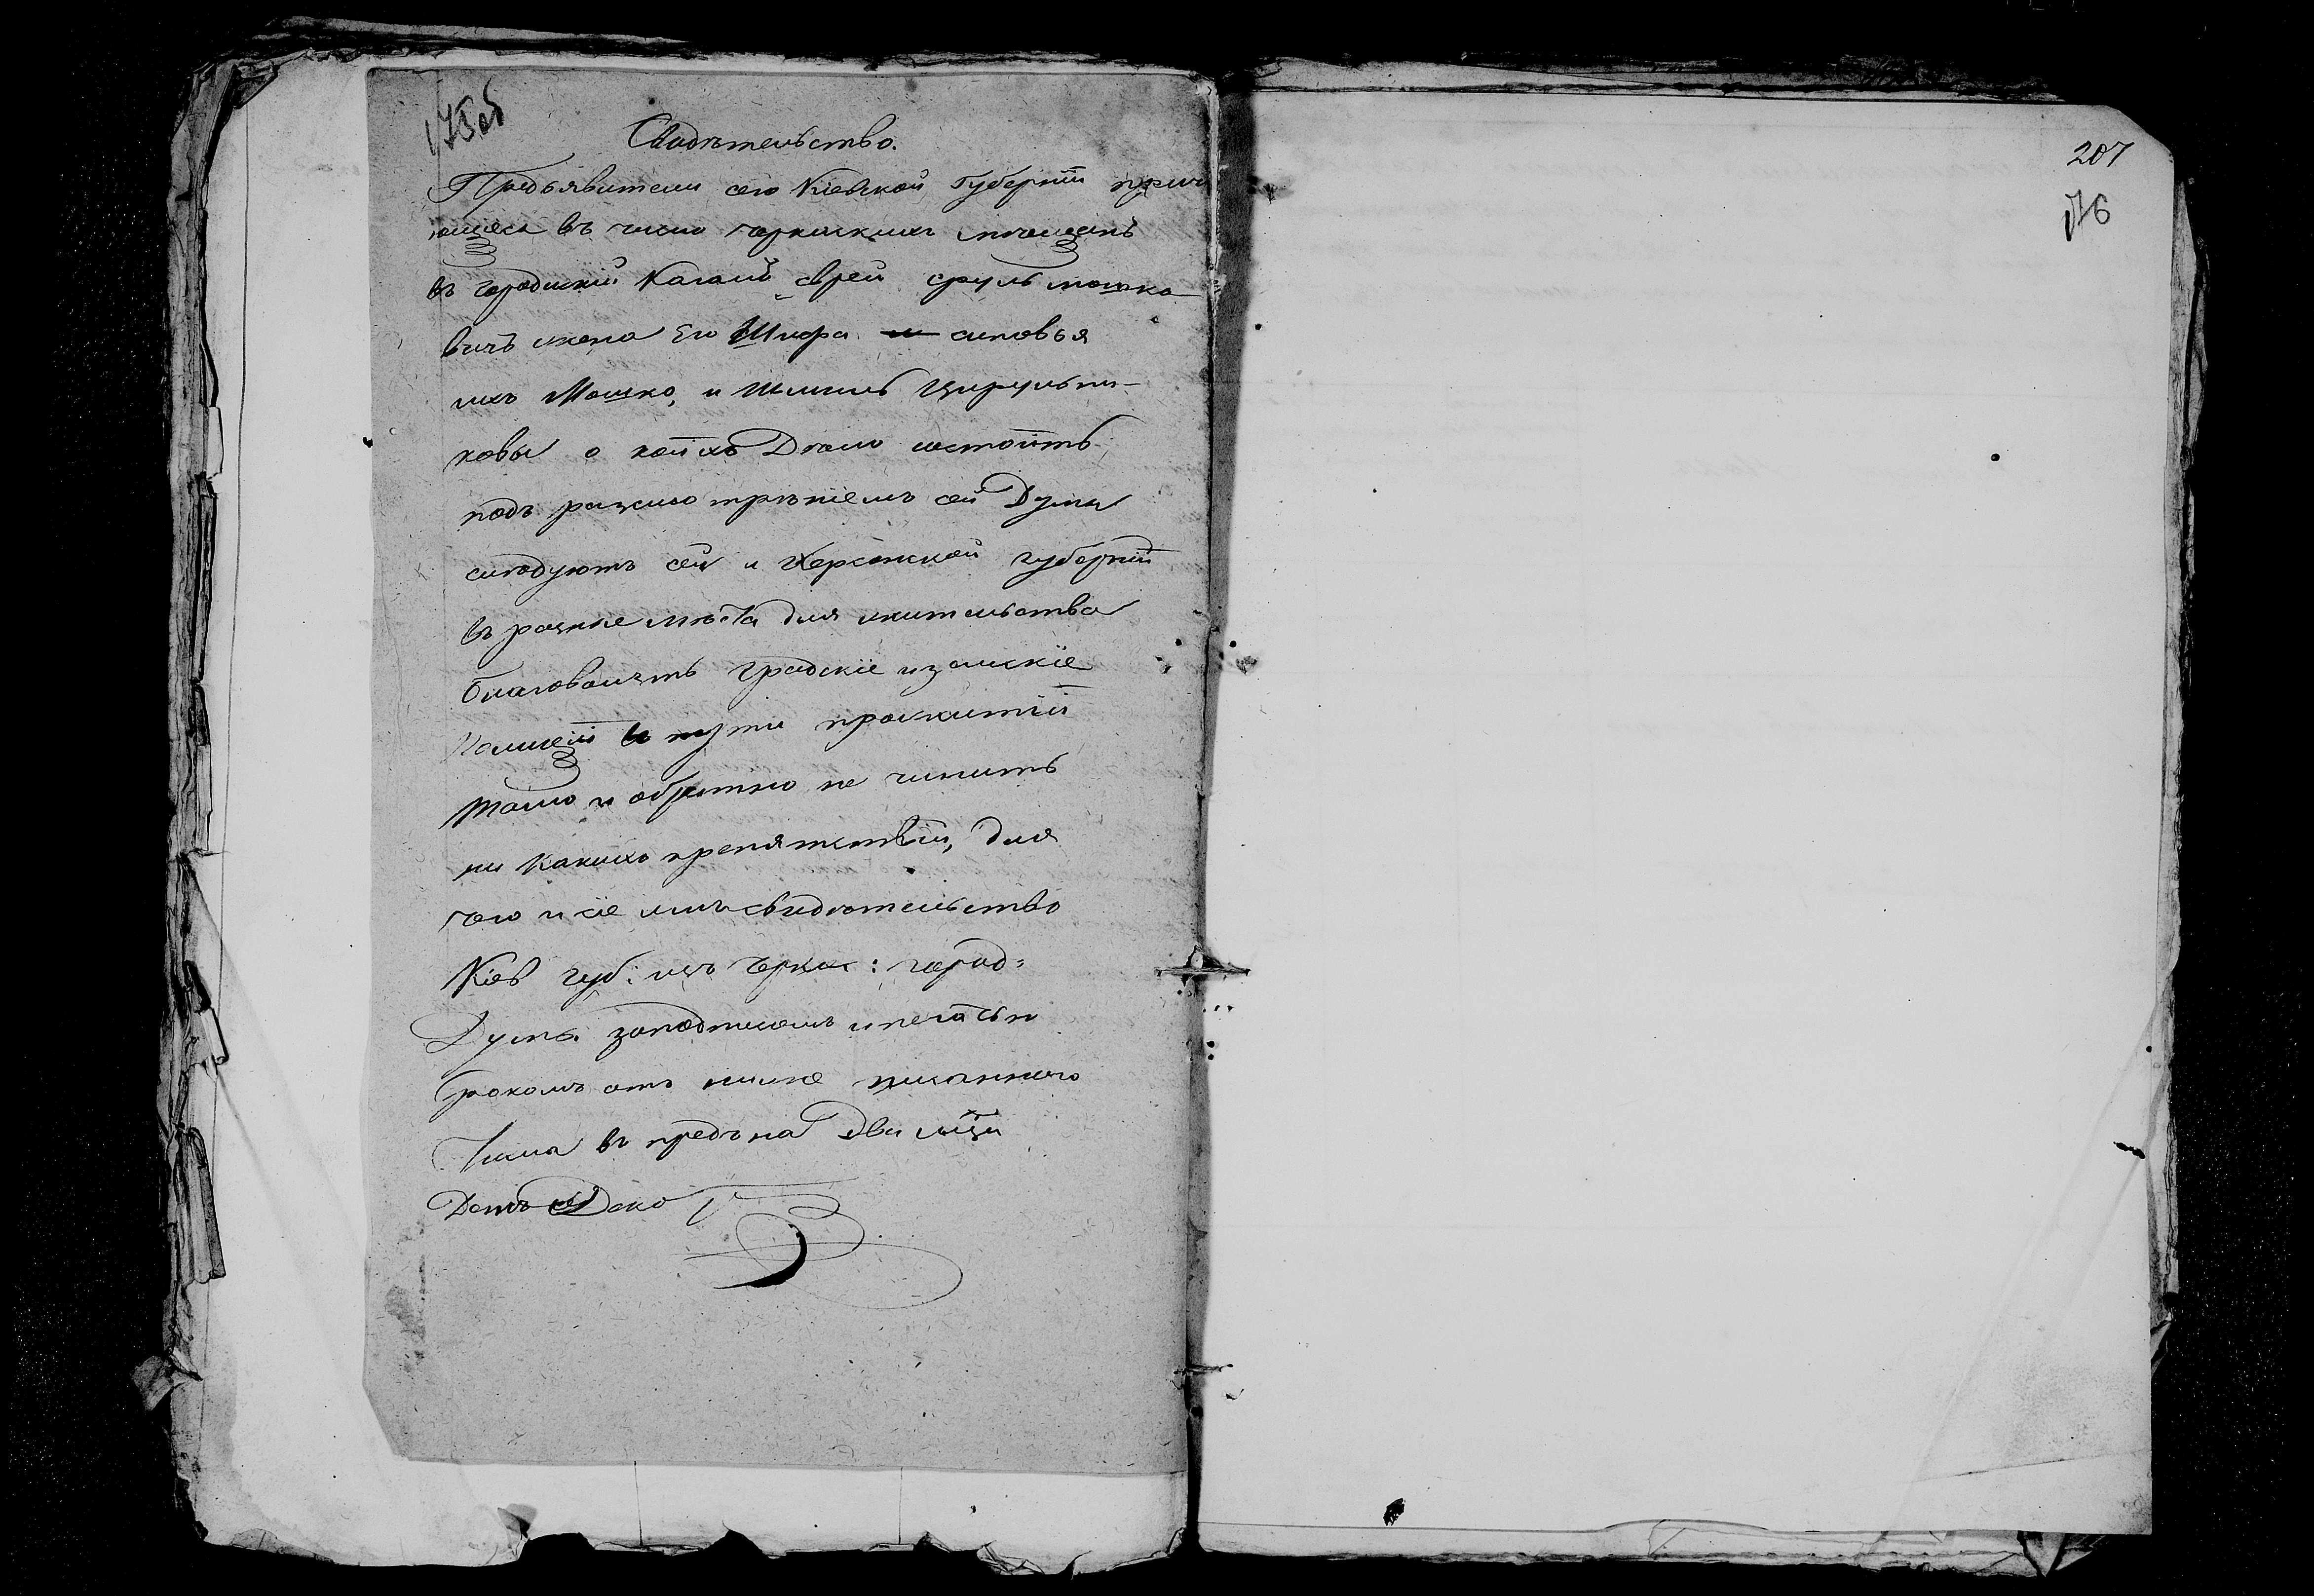 175об
Свидѣтельство.
Предъявители сего Кіевской Губерніи причи
ющіеся въ число черкаскихъ мѣщанъ
въ городискій Кагалъ евреи сруль мошко
вичъ жена Его Шифра и сыновья
ихъ Мошко, и Шмиль Цирульни-
ковы о коихъ Дѣло состоитъ
подъ разсмотрѣніемъ сей Думы
слѣдуютъ сей и Херсонской губерніи
въ разные мѣста для жительства
благоволятъ градскіе и земскіе
Полицеіи в пути
Тамо и обратно не чинить
ни какихъ препятствій, для
чего и сіе имъ свидѣтельство
Кіев губ: изъ черкас: город:
Думы заподписомъ и печатью
срокомъ отъ ниже писаннаго
Числа въ предъ на Два мѣцы
Данъ Деко
207
176